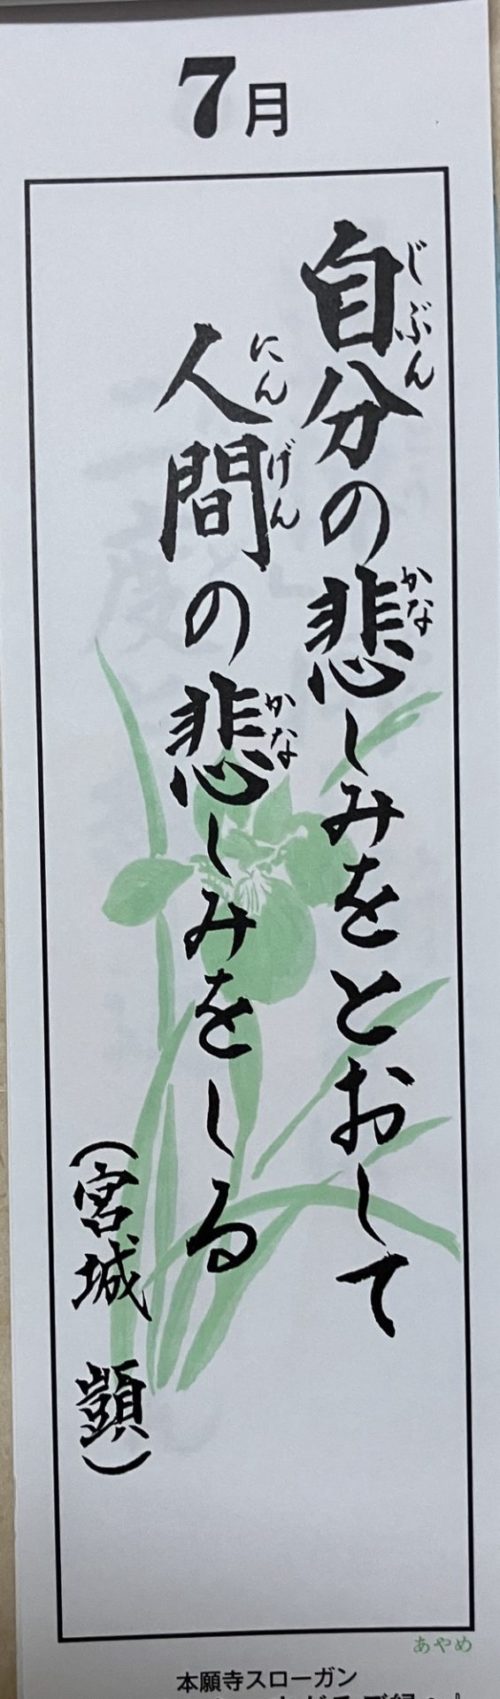 7月
自分の悲しみをとおして
じぶん
かな
人間の悲しみをしる
にんげん
かな
（宮城 顗）
あやめ
本願寺スローガン